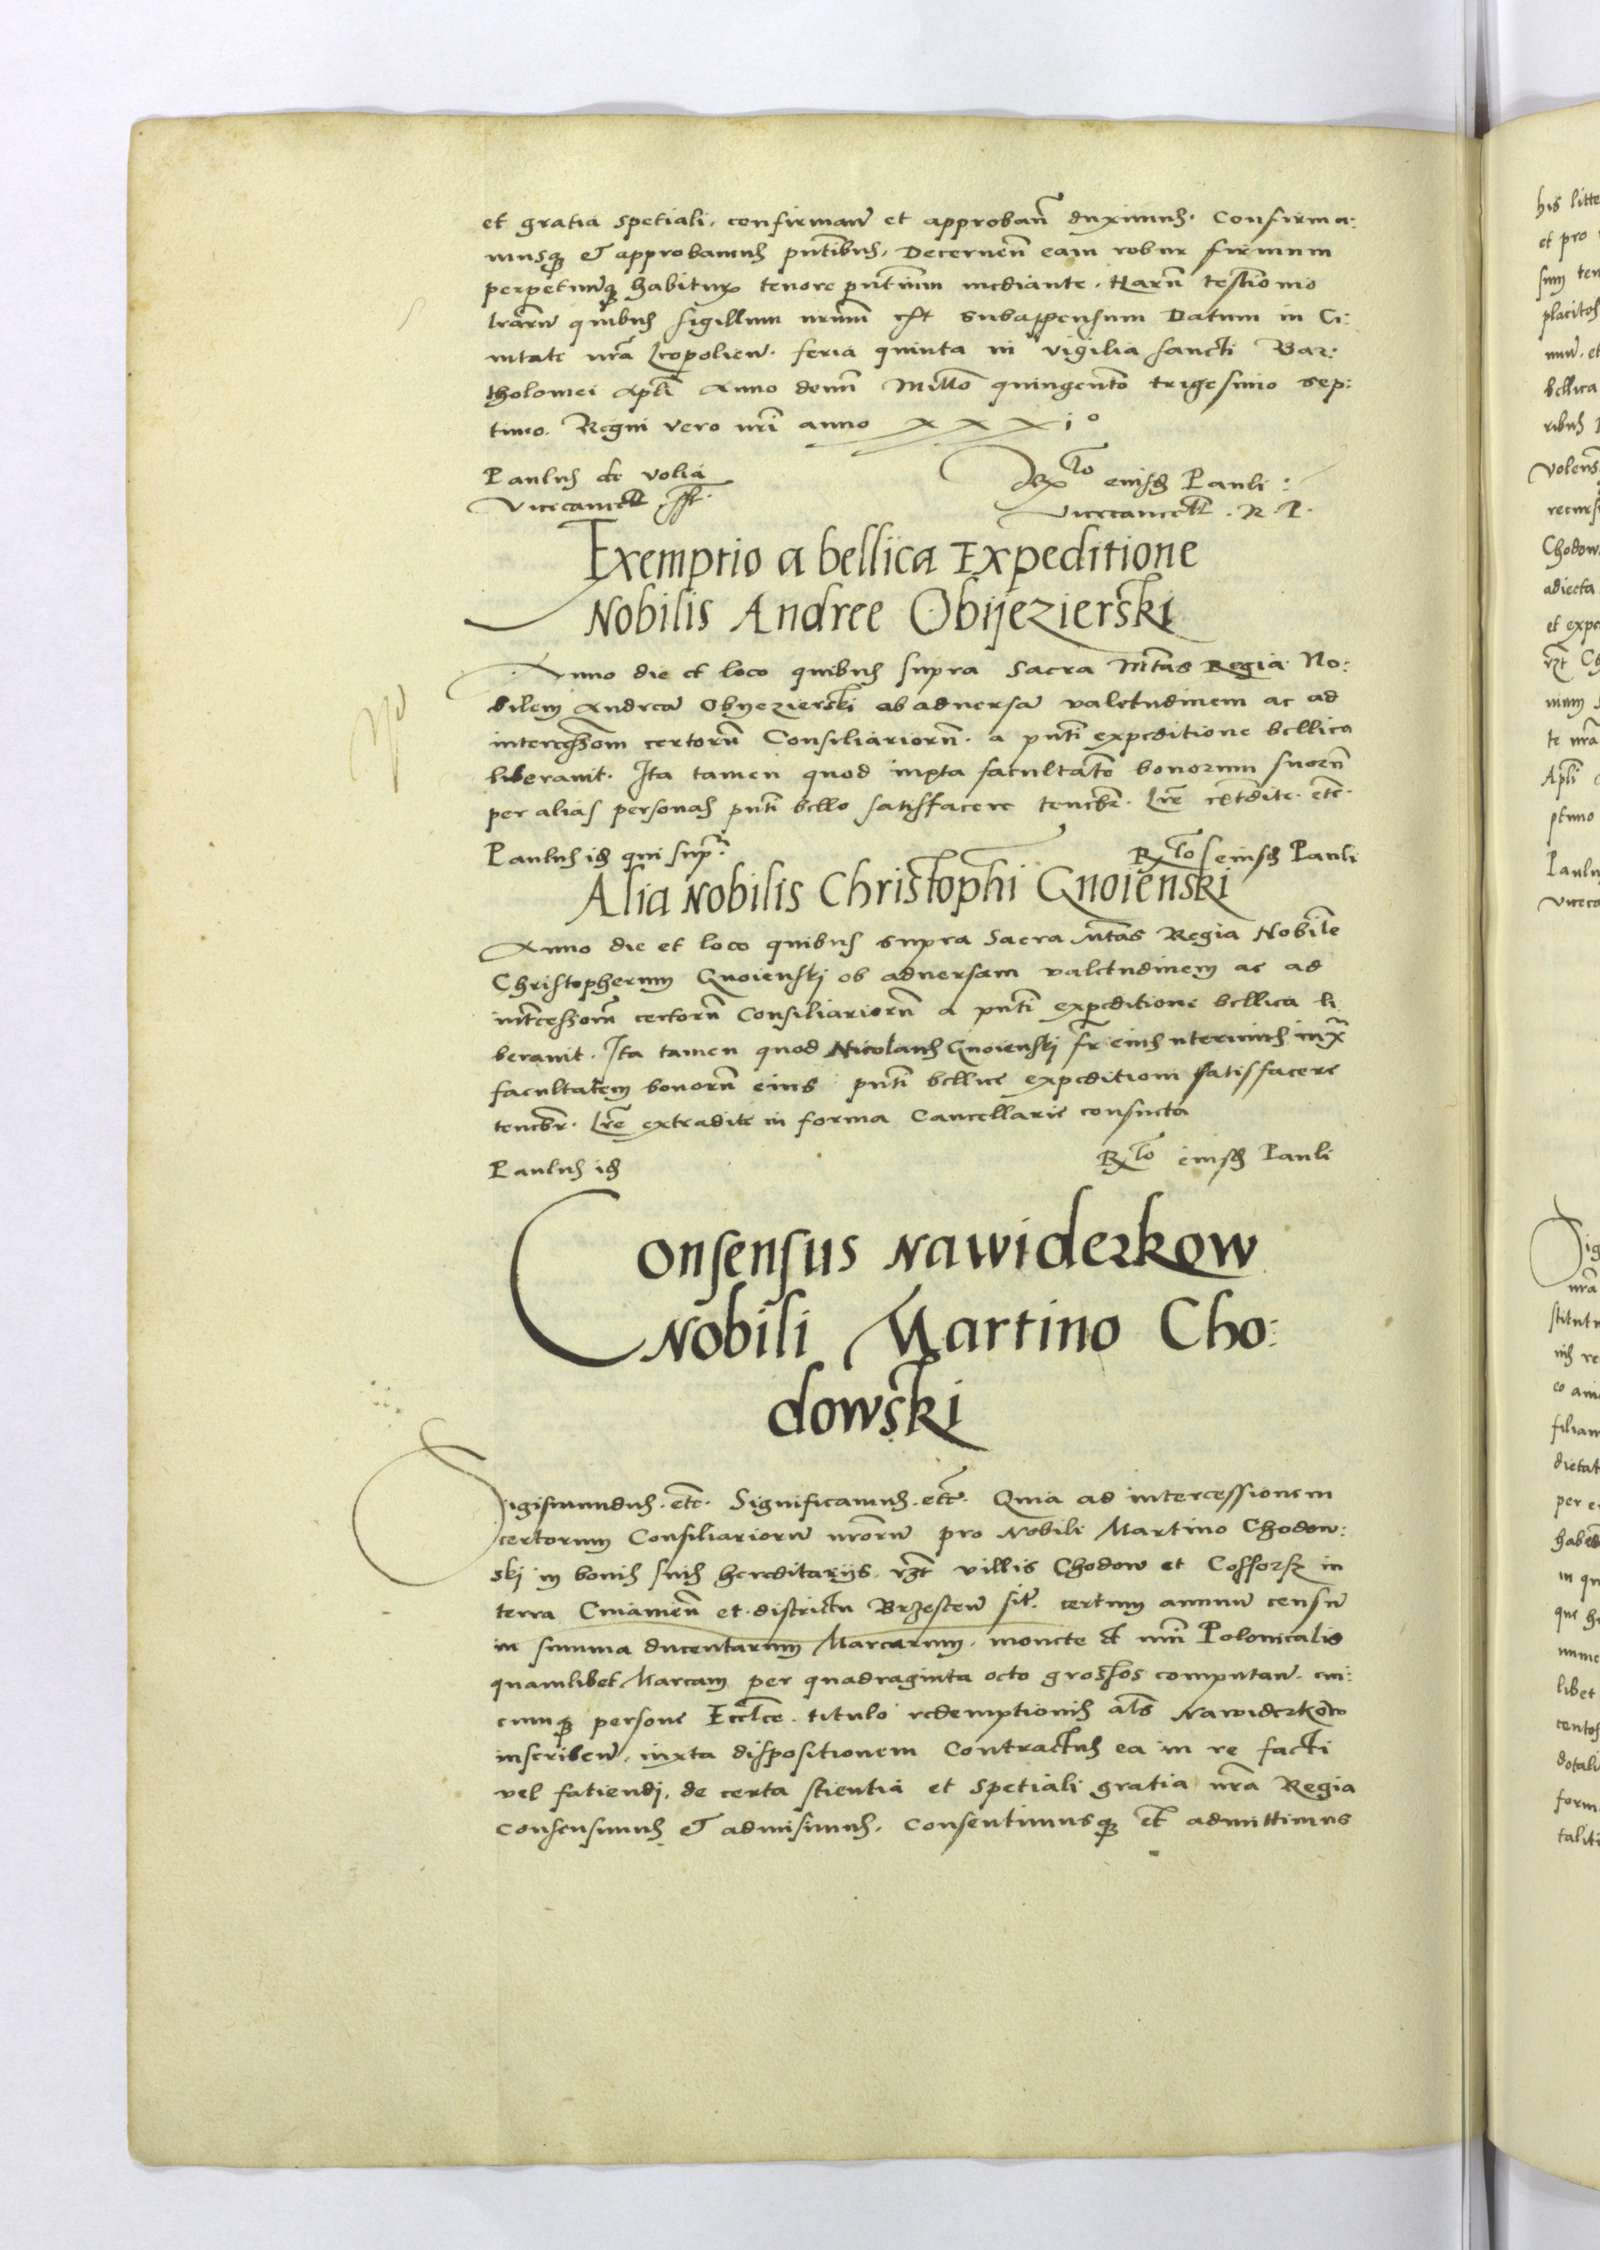 et gratia spetiali, confirman̄ et approban̄ duximus. Confirma:
musq̨ et approbamus pn̄tibus, Decernen̄ eam robur firmum
perpetuumq̨ habitur̄ tenore pn̄tium mediante. Harū testīonio
lrārū quibus sigillum nr̄um est subappensum Datum in Ci:
uitate nrā Leopolien̄. feria quinta in vigilia sancti Bar:
tholomei apli Anno domī Millō quingentō trigesimo sep:
timo. Regni vero nrī anno xxxi°
Paulus de Volia
Vicecancell. sst.
Rlō eiusd Pauli:
Vicecancell. R. P.
Exemptio a bellica Expeditione
Nobilis Andree Obijezierski
Anno die et loco quibus supra Sacra Mtas Regia No:
bilem Andreā Obyezierski ob aduersā valetudinem ac ad
intercessiōem certorū Consiliariorū. a pn̄ti expeditione bellica
liberauit. Ita tamen quod iuxta facultatē bonorum suorū
per alias personas pn̄ti bello satisfacere tenebr̄. Lrē extdite. etc̄.
Paulus id qui supr̄
Rlō eiusd Pauli
Alia Nobilis Christophi Gnoienski
Anno die et loco quibus supra Sacra Mtas Regia Nobilē
Christopherum Gnoienskj ob aduersam valetudinem ac ad
intcessionē certorū Consiliariorū a pn̄ti expeditione bellica li
berauit. Ita tamen quod Nicolaus Gnoienskj fr̄ eius uterinus iux̄
facultatem bonorū eius pn̄ti bellice expeditioni satisfacere
tenebr̄. Lrē extradite in forma Cancellarie consueta
Paulus id
Rlō eiusd Pauli
Consensus Nawiderkow
Nobili Martino Cho:
dowski
Sigismundus. etc̄. Significamus. etc̄. Quia ad intercessionem
certorum Consiliariorū nrōrū pro Nobili Martino Chodow:
skj in bonis suis hereditarijs, vzt villis Chodow et Cossorz in
terra Cuiauien̄ et districtu Brzesten̄ sit̄. certum annuū censū
in summa ducentarum Marcarum. monete et nūi Polonicalis
quamlibet Marcam per quadraginta octo grossos computan̄. cui:
cunq̨ persone Eccl̄ice. titulo redemptionis al̄s Nawiderkow
inscriben̄, iuxta dispositionem Contractus ea in re facti
vel fatiendj, de certa scientia et spetiali gratia nrā Regia
Consensimus et admisimus. Consentimusq̨ et admittimus